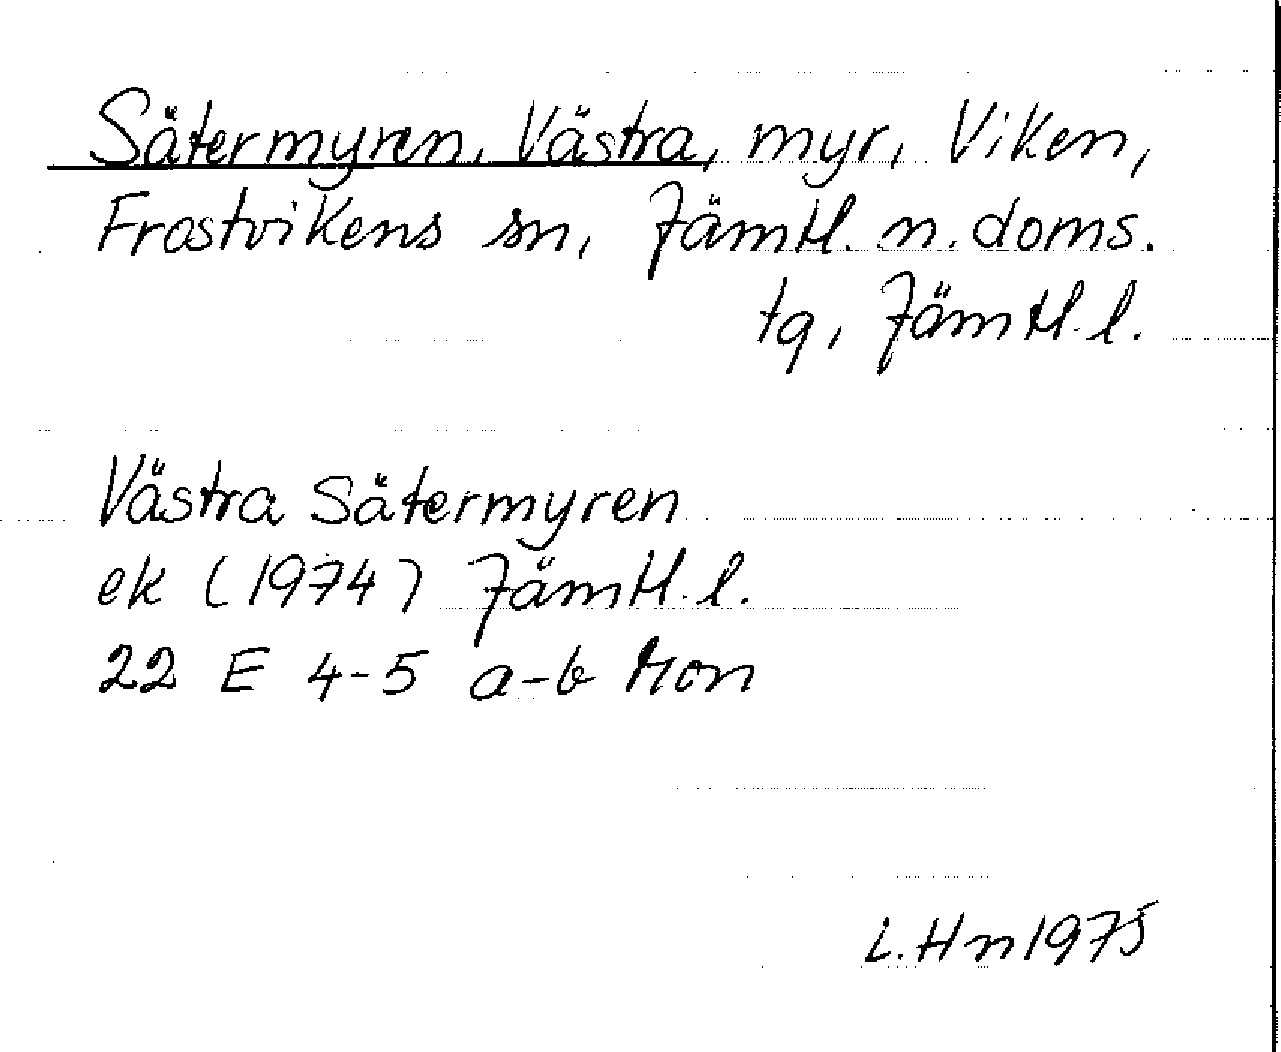 Sätermyren, Västra, myr, Viken,
Frostvikens sn, Jämtl. n. doms.
tg, Jämtl. l.
Västra Sätermyren
ek (1974) Jämtl. l.
22 E 4-5 a-b Mon
L. Hn 1975